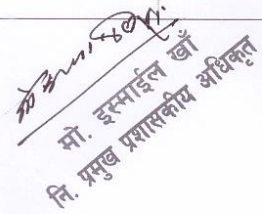 मो. इस्माईल खाँ
नि. प्रमुख प्रशासकीय अधिकृत